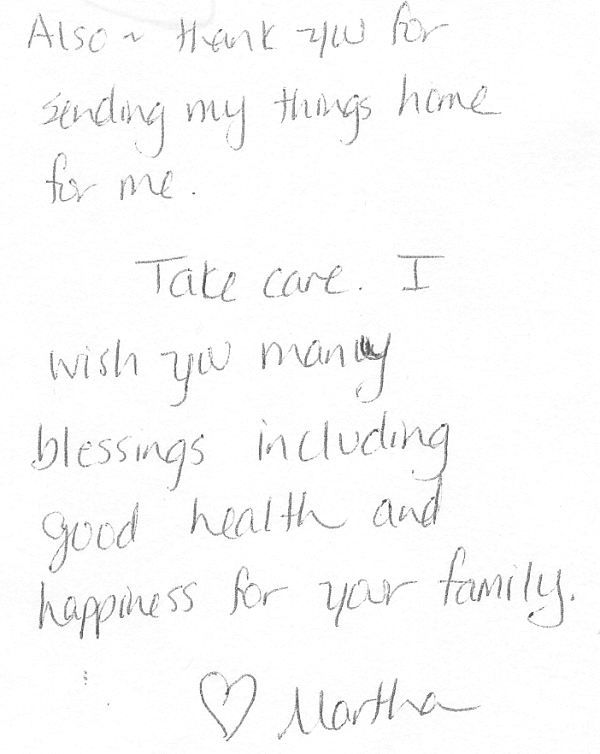 Also ~ thank you for
sending my things home
for me.
Take care. I
wish you many
blessings including
good health and
happiness for your family.
♡ Martha